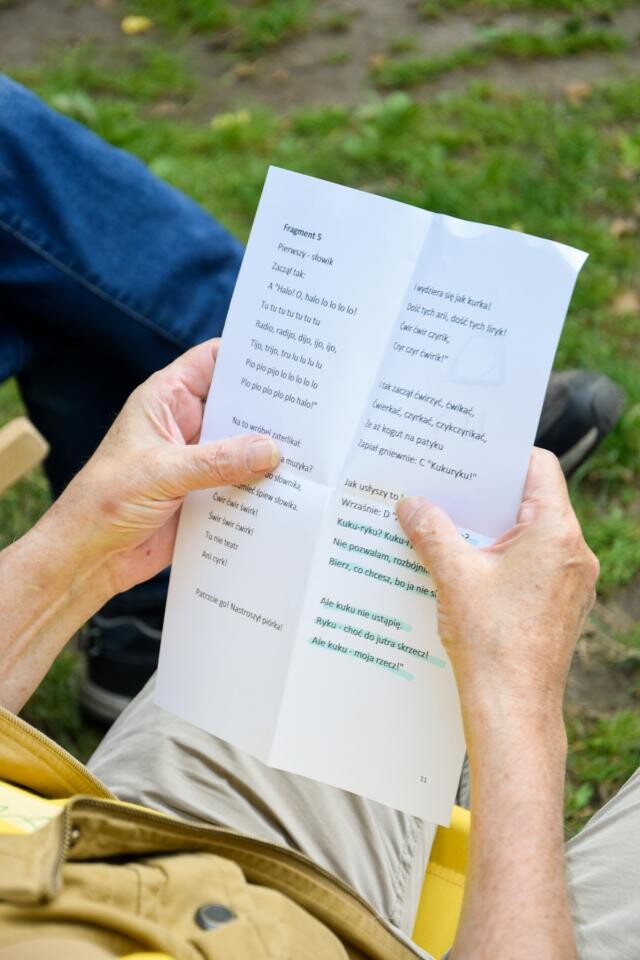 Fragment 5
Pierwszy - słowik
Zaczął tak:
A "Halo! O, halo lo lo lo lo!
Tu tu tu tu tu tu tu
Radio, radijo, dijo, ijo, ijo,
Tijo, trijo, tru lu lu lu lu
Pio pio pijo lo lo lo lo lo
Plo plo plo plo plo halo!"
Na to wróbel zaterlikał:
a muzyka?
słownika,
śpiew słowika.
Ćwir ćwir świrk!
Świr świr ćwirk!
Tu nie teatr
Ani cyrk!
Patrzcie go! Nastroszył piórka!
I wydziera się jak kurka!
Dość tych arii, dość tych liryk!
Ćwir ćwir czyrik,
Czyr czyr ćwirik!"
I tak zaczął ćwirzyć, ćwikać,
Ćwierkać, czyrkać, czykczyrikać,
Że aż kogut na patyku
Zapiał gniewnie: C "Kukuryku!"
Jak usłyszy to
Wrzaśnie: D
Kuku-ryku?
Nie pozwalam,
Bierz, co chcesz, bo ja nie
Ale kuku nie ustąpię
Ryku - choć do jutra skrzecz!
Ale kuku - moja rzecz!"
11